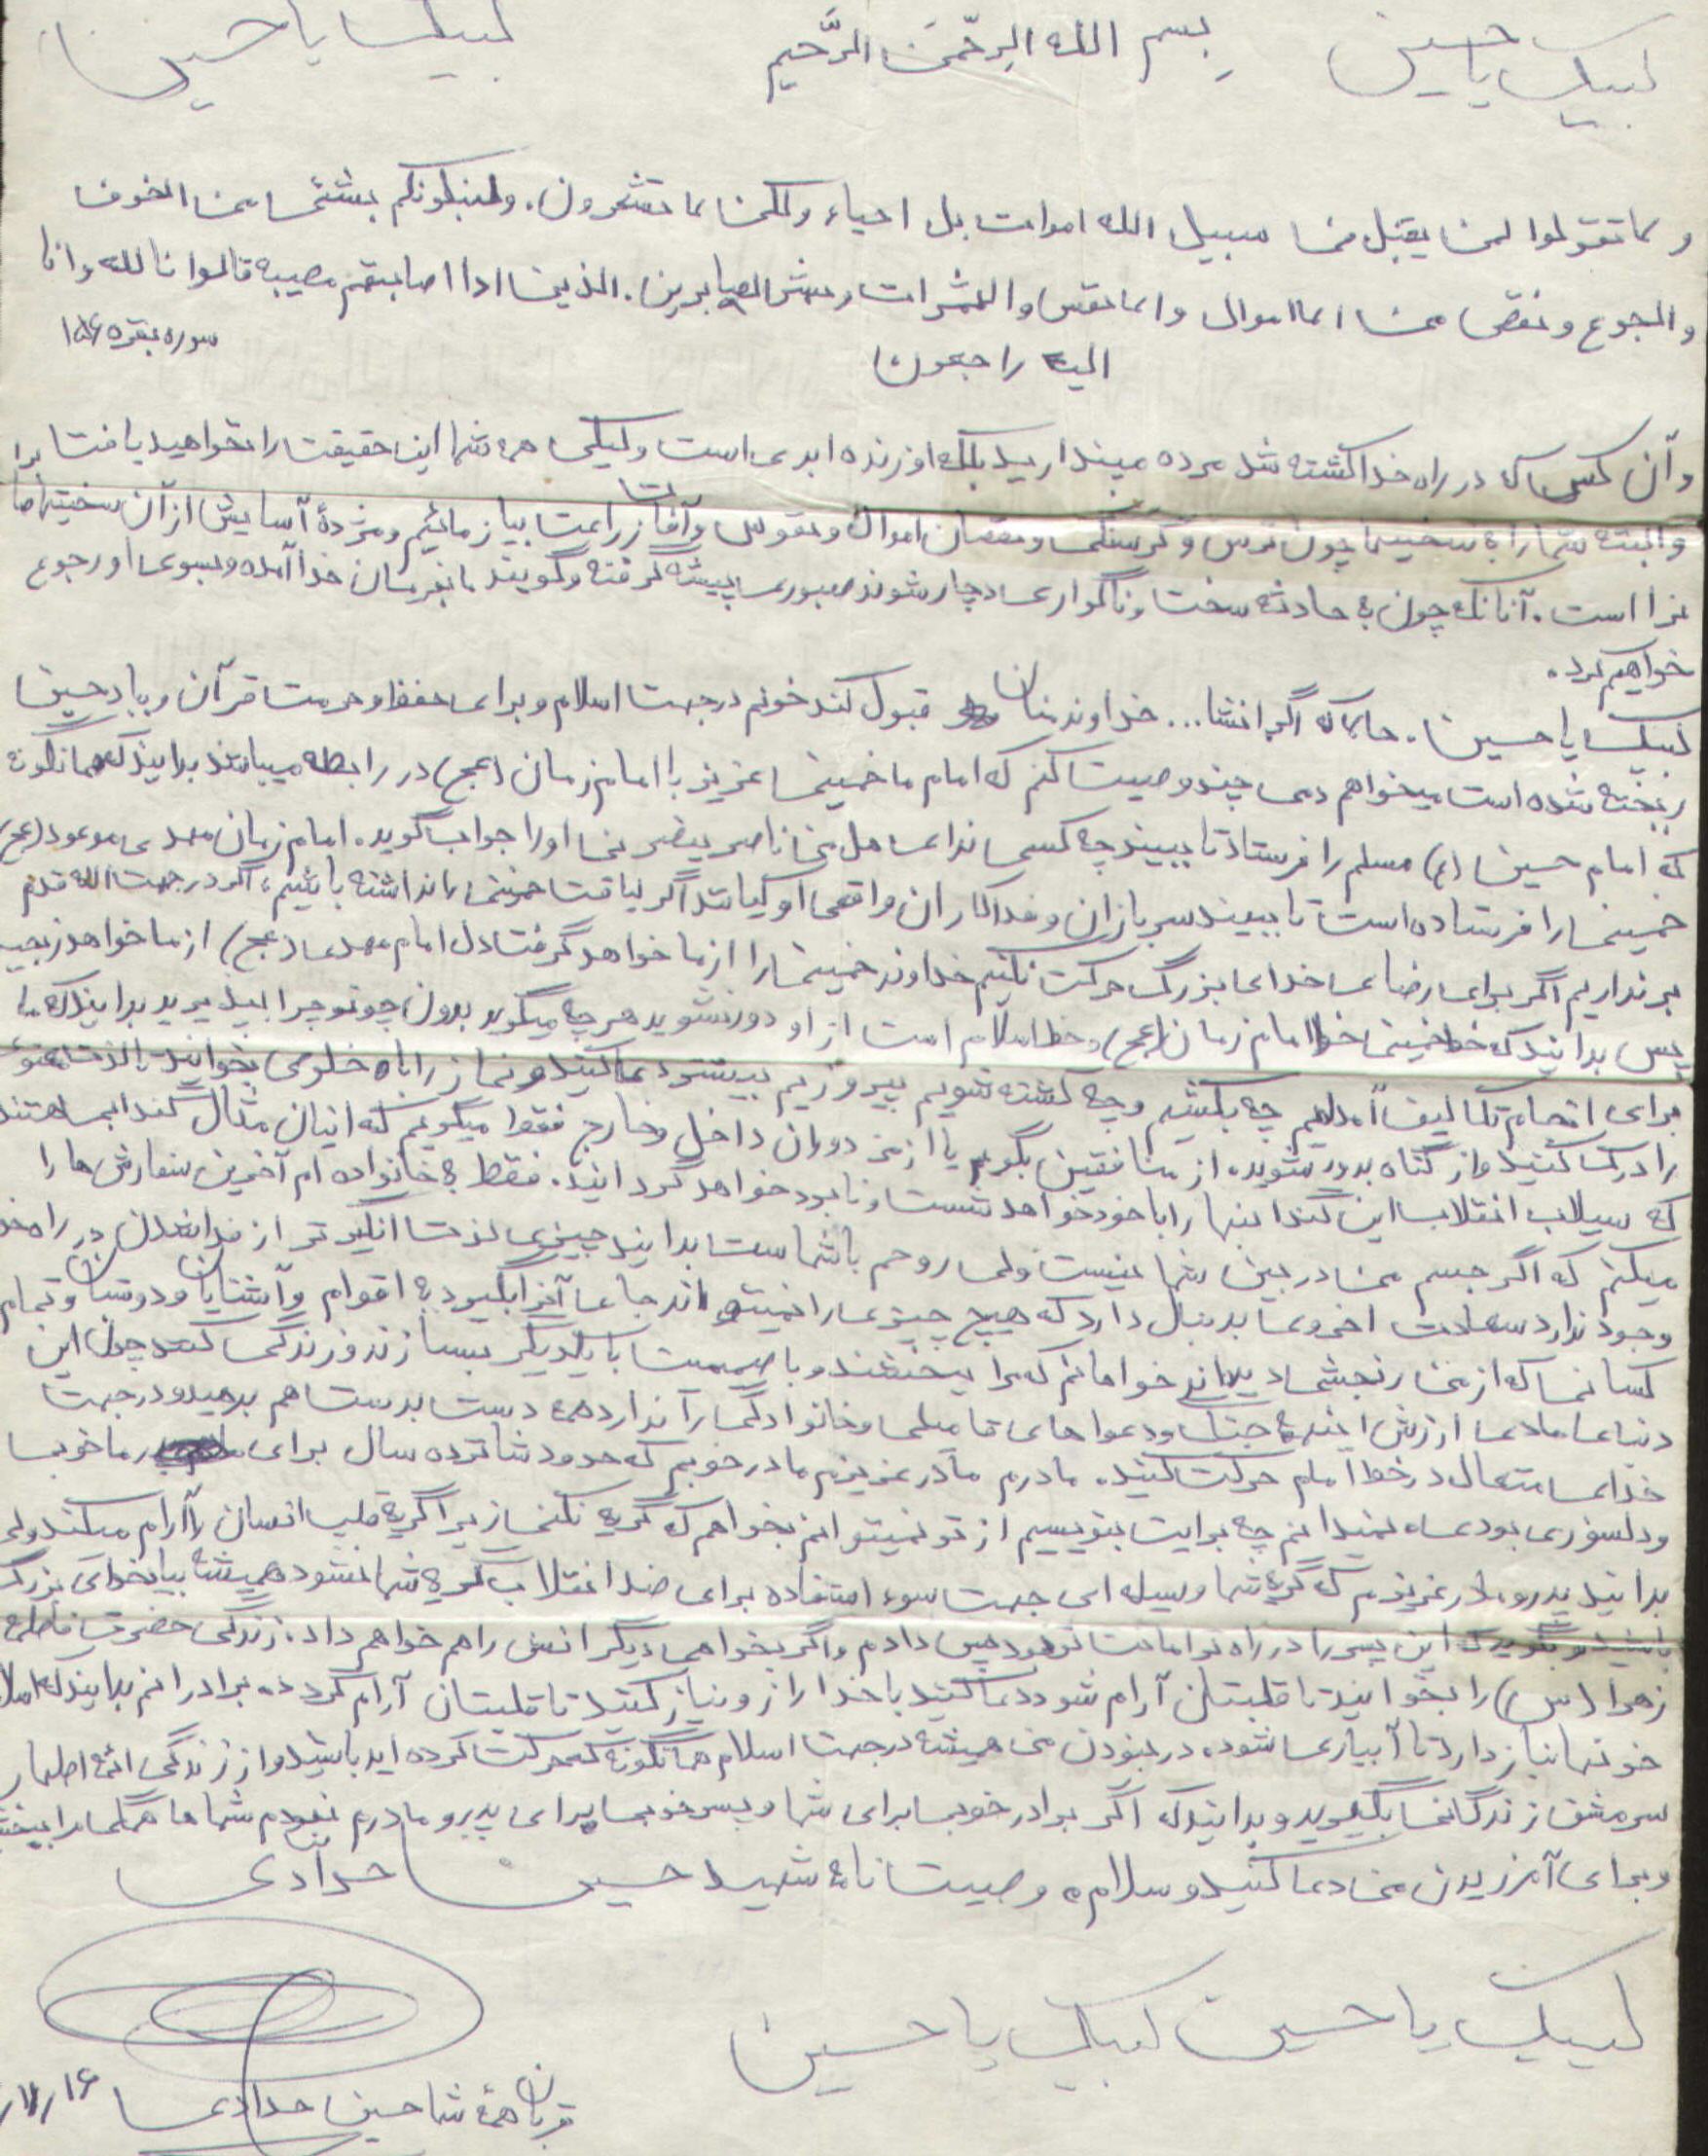 لبیک یا حسین بسم الله الرحمن الرحیم لبیک یا حسین
و لا تقولوا لمن یقتل فی سبیل الله اموات بل احیاء ولکن لا تشعرون. ولنبلونکم بشئی من الخوف
والجوع و نقص من الاموال والانفس والثمرات و بشر الصابرین. الذین اذا اصابتهم مصیبه قالوا انا لله وانا
الیه راجعون سوره بقره ۱۵۶
و آن کسی که در راه خدا کشته شد مرده مپندارید بلکه او زنده ابدی است ولیکن همه شما این حقیقت را نخواهید یافت
و البته شما را به سختیها چون ترس و گرسنگی و نقصان اموال و نفوس و آفات زراعت بیازمائیم و مژدهٔ آسایش از آن سختیها
است. آنانکه چون به حادثه سخت و ناگواری دچار شوند صبوری پیشه گرفته و گویند ما بفرمان خدا آمده و بسوی او رجوع
خواهیم کرد.
لبیک یا حسین. حالا که اگر انشا... خداوند منان قبول کند خونم در جهت اسلام و برای حفظ و حرمت قرآن و بیاد حسین
ریخته شده است میخواهم چند وصیت کنم که امام ما خمینی عزیز با امام زمان (عج) در رابطه میباشد بدانید که همانگونه
که امام حسین (ع) مسلم را فرستاد تا ببیند چه کسی ندای هل من ناصر ینصرنی او را جواب گوید. امام زمان مهدی موعود (عج)
خمینی را فرستاده است تا ببیند سربازان و فداکاران واقعی او کیانند اگر لیاقت خمینی را نداشته باشیم، اگر در جهت الله قدم
برنداریم اگر برای رضای خدای بزرگ حرکت نکنیم خداوند خمینی را از ما خواهد گرفت دل امام مهدی (عج) از ما خواهد رنجید
پس بدانید که خط خمینی خط امام زمان (عج) و خط اسلام است از او دور نشوید هر چه میگوید بدون چون و چرا بپذیرید بدانید که ما
برای انجام تکالیف آمدهایم چه بکشیم و چه کشته شویم پیروزیم بیشتر دعا کنید و نماز را با خلوص بخوانید لذت معنوی
را درک کنید و از گناه بدور شوید. از منافقین بگویم یا از مزدوران داخل و خارج فقط میگویم که اینان مثال گندابی هستند
که سیلاب انقلاب این گندابها را با خود خواهد شست و نابود خواهد گردانید. فقط به خانواده ام آخرین سفارشها را
میکنم که اگر جسم من در بین شما نیست ولی روحم با شماست بدانید چیزی لذت انگیزتر از فدا شدن در راه خدا
وجود ندارد سعادت اخروی بدنبال دارد که هیچ چیزی را نمیتواند جای آنرا بگیرد به اقوام و آشنایان و دوستان و تمام
کسانی که از من رنجشی دیدهاند خواهانم که مرا ببخشند و با صمیمیت با یکدیگر بسازند و زندگی کنند چون این
دنیای مادی ارزش اینهمه جنگ و دعواهای فامیلی و خانوادگی را ندارد همه دست بدست هم بدهید و در جهت
خدای متعال در خط امام حرکت کنید. مادرم مادر عزیزم مادر خوبم که حدود شانزده سال برای مادر خوب
و دلسوزی بودی نمیدانم چه برایت بنویسم از تو نمیتوانم بخواهم که گریه نکنی زیرا گریه قلب انسان را آرام میکند ولی
بدانید پدر و مادر عزیزم که گریه شما وسیله ای جهت سوء استفاده برای ضد انقلاب گریه شما نشود همیشه بیاد خدای بزرگ
باشید و بگوئید که این پسر را در راه تو امانت تو بود پس دادم و اگر بخواهی دیگرانش را هم خواهم داد. زندگی حضرت فاطمه
زهرا (س) را بخوانید تا قلبتان آرام شود دعا کنید با خدا راز و نیاز کنید تا قلبتان آرام گردد. برادرانم بدانید که اسلام
خونها نیاز دارد تا آبیاری شود. در نبودن من همیشه در جهت اسلام همانگونه که حرکت کرده اید باشید و از زندگی ائمه اطهار
سرمشق زندگانی بگیرید و بدانید که اگر برادر خوبی برای شما و پسر خوبی برای پدر و مادرم نبودم شماها همگی مرا ببخشید
و بجای آمرزیدن من دعا کنید و سلام. وصیت نامه شهید حسین حدادی
لبیک یا حسین لبیک یا حسین
قربان همهٔ شما حسین حدادی ۱۶